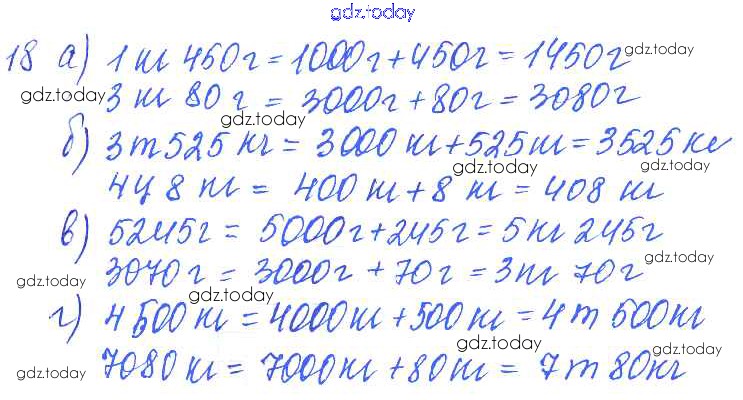 gdz.today
18 а) 1 кг 450г = 1000г + 450г = 1450г gdz.today
gdz.today 3 кг 80 г = 3000г + 80г = 3080г
gdz.today
б) 3т 525 кг = 3000 кг + 525 кг = 3525 кг
gdz.today gdz.today
4ц 8 кг = 400 кг + 8 кг = 408 кг
в) 5245г = 5000г + 245г = 5кг 245г
gdz.today 3070г = 3000г + 70г = 3кг 70г gdz.today
gdz.today
г) 4500 кг = 4000кг + 500 кг = 4т 500кг
gdz.today gdz.today
gdz.today 7080 кг = 7000кг + 80кг = 7т 80кг